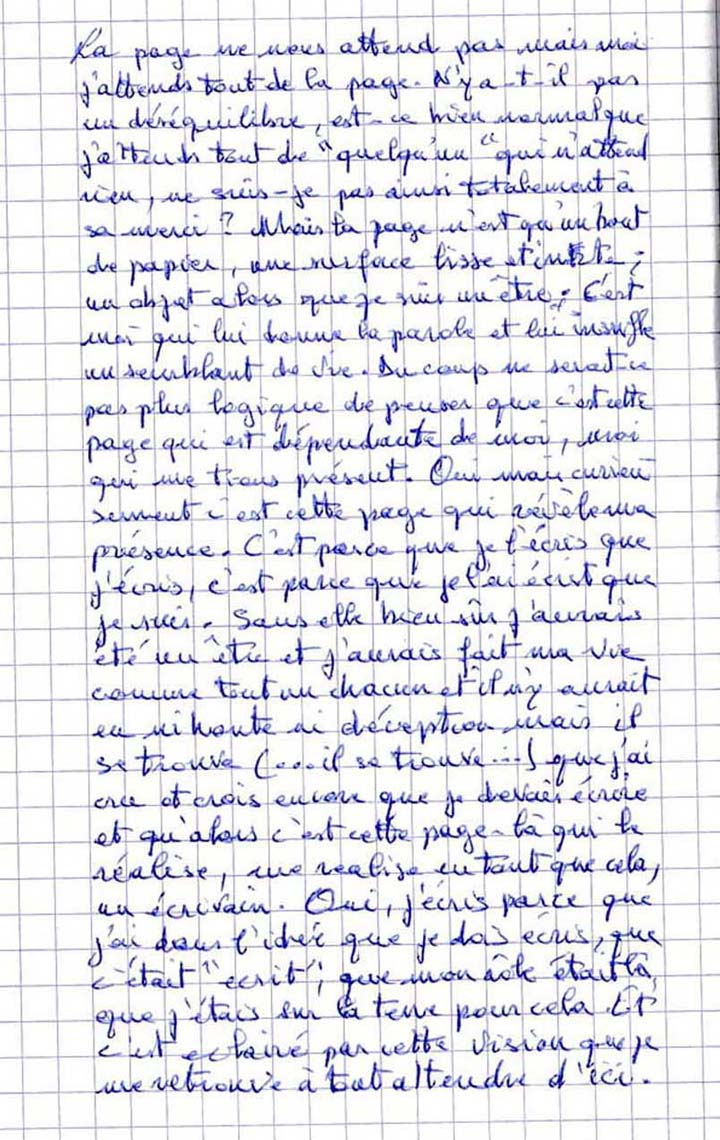 La page ne nous attend pas mais moi
j'attends tout de la page. N'y a-t-il pas
un déséquilibre, est-ce bien normal que
j'attends tout de "quelqu'un" qui n'attend
rien, ne suis-je pas ainsi totalement à
sa merci ? Mais la page n'est qu'un bout
de papier, une surface lisse et inerte ;
un objet alors que je suis un être ; C'est
moi qui lui donne la parole et lui insuffle
un semblant de vie. Du coup ne serait-ce
pas plus logique de penser que c'est cette
page qui est dépendante de moi, moi
qui me tiens présent. Oui mais curieu
sement c'est cette page qui révèle ma
présence. C'est parce que je l'écris que
j'écris, c'est parce que je l'ai écrit que
je suis. Sans elle bien sûr j'aurais
été un être et j'aurais fait ma vie
comme tout un chacun et il n'y aurait
eu ni honte ni déception mais il
se trouve (...il se trouve...) que j'ai
cru et crois encore que je devais écrire
et qu'alors c'est cette page-là qui le
réalise, me realise en tant que cela,
un écrivain. Oui, j'écris parce que
j'ai dans l'idée que je dois écris, que
c'était "ecrit", que mon rôle était là,
que j'étais sur la terre pour cela. Et
c'est eclairé par cette vision que je
me retrouve à tout attendre d'ici.